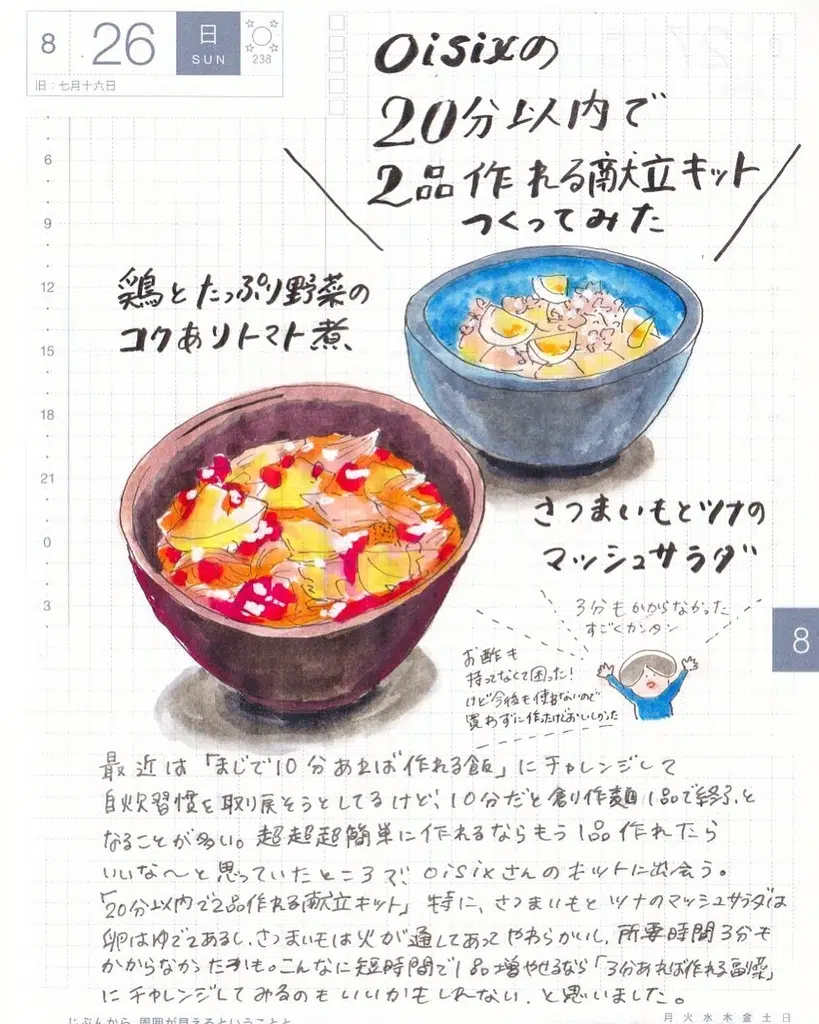 8 26 日 SUN 238
旧:七月十六日
Oisixの
20分以内で
2品作れる献立キット
つくってみた
6
9
12
15
18
21
0
3
鶏とたっぷり野菜の
コクありトマト煮
さつまいもとツナの
マッシュサラダ
3分もかからなかった
すごくカンタン
お酢も
持ってなくて困った!
けど今後も使わないので
買わずに作ったけどおいしかった
8
最近は「まじで10分あれば作れる飯」にチャレンジして
自炊習慣を取り戻そうとしてるけど、10分だと創作麺1品で終了、と
なることが多い。超超超簡単に作れるならもう1品作れたら
いいな〜と思っていたところで、oisixさんのキットに出会う。
「20分以内で2品作れる献立キット」特に、さつまいもとツナのマッシュサラダは
卵はゆでてあるし、さつまいもは火が通してあってやわらかいし、所要時間3分も
かからなかったかも。こんなに短時間で1品増やせるなら「3分あれば作れる副菜」
にチャレンジしてみるのもいいかもしれない、と思いました。
月 火 水 木 金 土 日